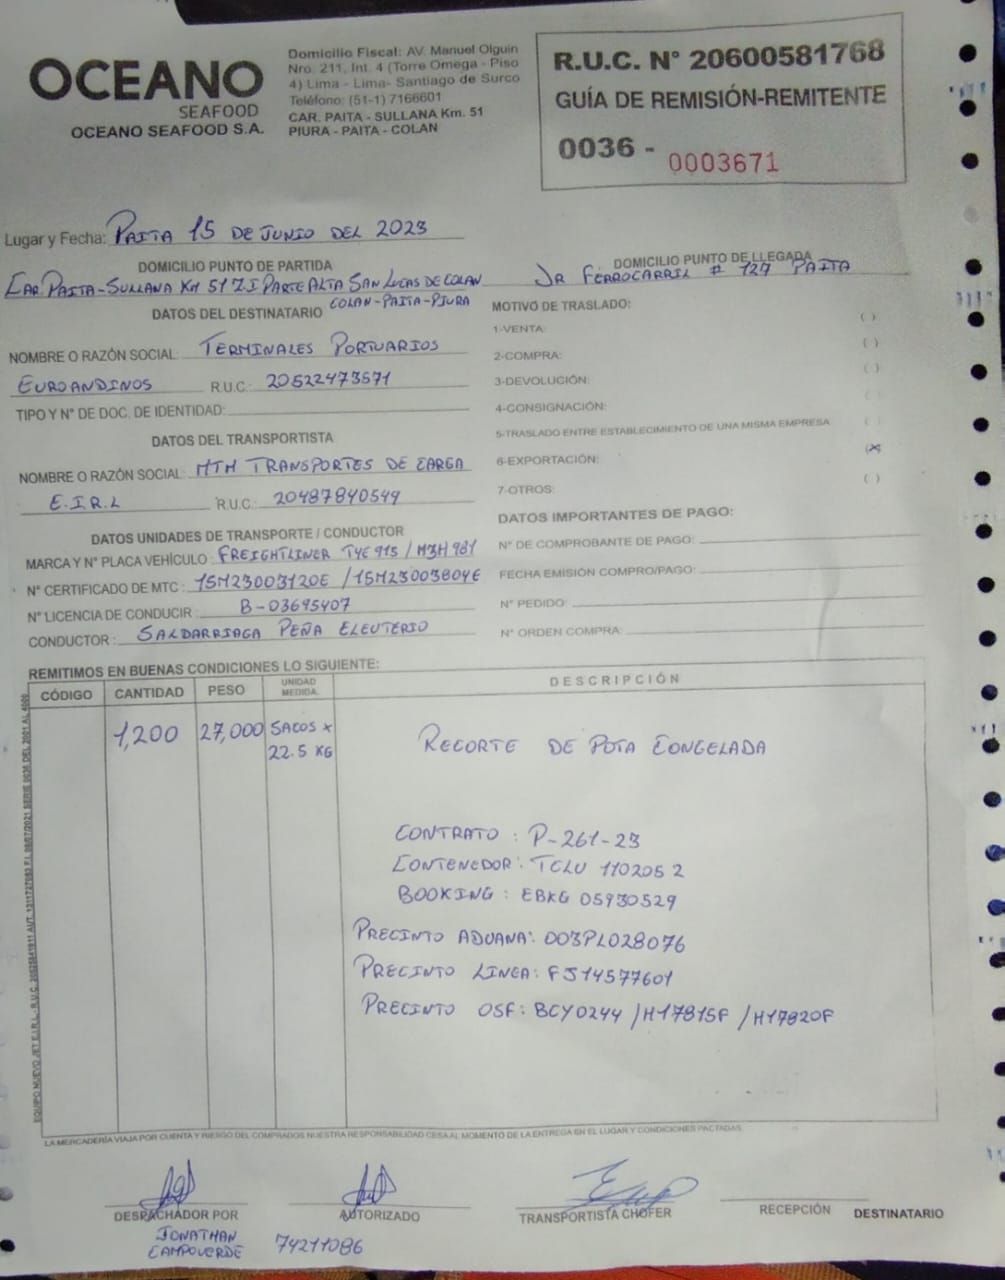 OCEANO
SEAFOOD
OCEANO SEAFOOD S.A.
Domicilio Fiscal: AV. Manuel Olguin
Nro. 211, Int. 4 (Torre Omega - Piso
4) Lima - Lima- Santiago de Surco
Teléfono: (51-1) 7166601
CAR. PAITA - SULLANA Km. 51
PIURA - PAITA - COLAN
R.U.C. N° 20600581768
GUÍA DE REMISIÓN-REMITENTE
0036 - 0003671
Lugar y Fecha: PAITA 15 DE JUNIO DEL 2023
DOMICILIO PUNTO DE PARTIDA
CAR PAITA-SULLANA KM 51 Z.I PARTE ALTA SAN LUCAS DE COLAN
COLAN-PAITA-PIURA
DOMICILIO PUNTO DE LLEGADA
JR FERROCARRIL # 127 PAITA
DATOS DEL DESTINATARIO
NOMBRE O RAZÓN SOCIAL: TERMINALES PORTUARIOS
EUROANDINOS R.U.C.: 20522473571
TIPO Y N° DE DOC. DE IDENTIDAD:
DATOS DEL TRANSPORTISTA
NOMBRE O RAZÓN SOCIAL: MTM TRANSPORTES DE CARGA
E.I.R.L R.U.C.: 20487840549
DATOS UNIDADES DE TRANSPORTE / CONDUCTOR
MARCA Y N° PLACA VEHÍCULO: FREIGHTLINER TYE 915 / M3H 981
N° CERTIFICADO DE MTC: 15M23003120E / 15M23003804E
N° LICENCIA DE CONDUCIR: B-03695407
CONDUCTOR: SALDARRIAGA PEÑA ELEUTERIO
MOTIVO DE TRASLADO:
1-VENTA: ( )
2-COMPRA: ( )
3-DEVOLUCIÓN: ( )
4-CONSIGNACIÓN: ( )
5-TRASLADO ENTRE ESTABLECIMIENTO DE UNA MISMA EMPRESA ( )
6-EXPORTACIÓN: (X)
7-OTROS: ( )
DATOS IMPORTANTES DE PAGO:
N° DE COMPROBANTE DE PAGO:
FECHA EMISIÓN COMPRO/PAGO:
N° PEDIDO:
N° ORDEN COMPRA:
REMITIMOS EN BUENAS CONDICIONES LO SIGUIENTE:
CÓDIGO CANTIDAD PESO UNIDAD MEDIDA. DESCRIPCIÓN
1,200 27,000 SACOS x 22.5 KG RECORTE DE POTA CONGELADA
CONTRATO : P-261-23
CONTENEDOR: TCLU 110205 2
BOOKING : EBKG 05930529
PRECINTO ADUANA: 003PL028076
PRECINTO LINEA: FJ14577601
PRECINTO OSF: BCY0244 / H17815F / H17820F
LA MERCADERÍA VIAJA POR CUENTA Y RIESGO DEL COMPRADOS NUESTRA RESPONSABILIDAD CESA AL MOMENTO DE LA ENTREGA EN EL LUGAR Y CONDICIONES PACTADAS.
DESPACHADOR POR
JONATHAN
CAMPOVERDE
AUTORIZADO
74211086
TRANSPORTISTA CHOFER
RECEPCIÓN DESTINATARIO